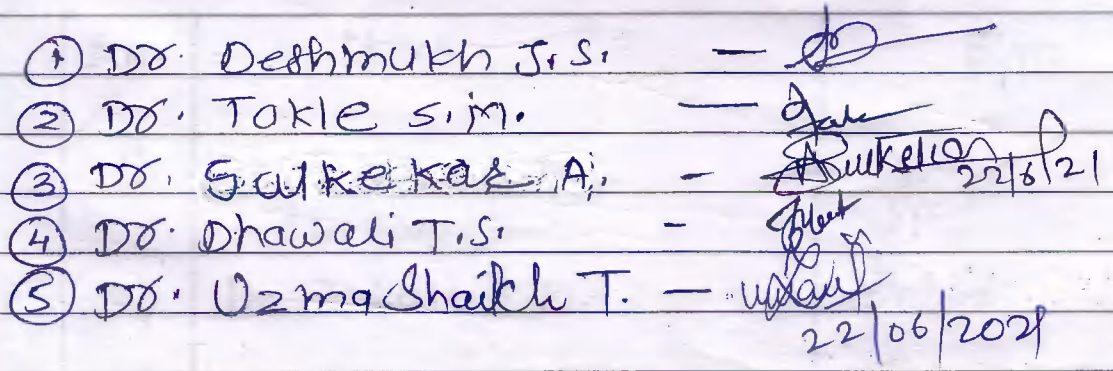 ① Dr. Deshmukh J.S. —
② Dr. Tokle S.M. —
③ Dr. A. - 22/6/21
④ Dr. Dhawali T.S. -
⑤ Dr. Uzma Shaikh T. —
22/06/2021